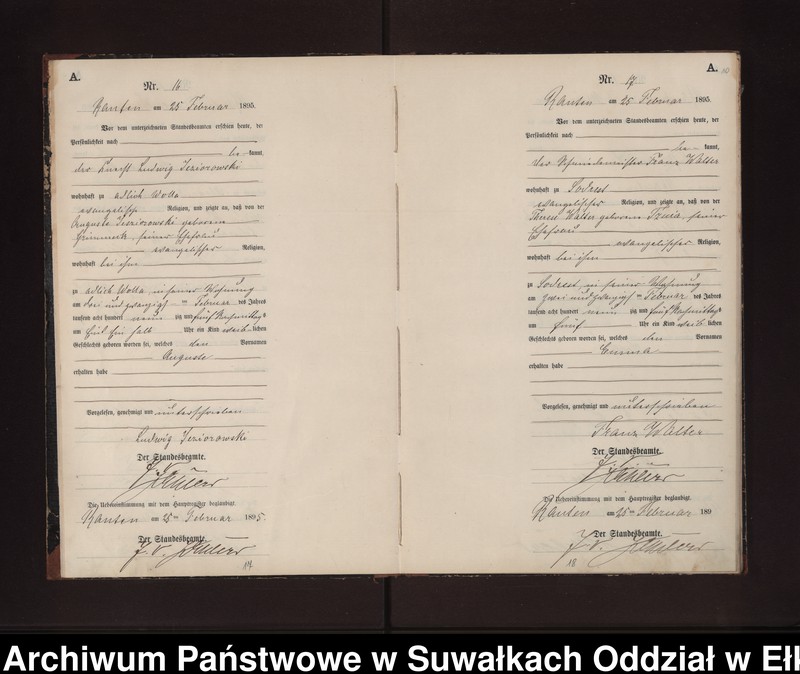 A.
Nr. 16
Kanten am 25 Februar 1895.
Vor dem unterzeichneten Standesbeamten erschien heute, der
Persönlichkeit nach
be kannt,
der Knecht Ludwig Jeziorowski
wohnhaft zu adlich Wolla
evangelische Religion, und zeigte an, daß von der
Auguste Jeziorowski geborene
seiner Ehefrau
evangelischer Religion,
wohnhaft bei ihm
zu adlich Wolla in seiner Wohnung
am drei und zwanzigsten Februar des Jahres
tausend acht hundert neun zig und fünf Nachmittags
um halb Uhr ein Kind weib lichen
Geschlechts geboren worden sei, welches den Vornamen
Auguste
erhalten habe
Vorgelesen, genehmigt und unterschrieben
Ludwig Jeziorowski
Der Standesbeamte.
Die Uebereinstimmung mit dem Hauptregister beglaubigt
Kanten am 25ten Februar 1895.
Der Standesbeamte.
J. V.
17
A.
Nr. 17
Kanten am 25 Februar 1895
Vor dem unterzeichneten Standesbeamten erschien heute, der
Persönlichkeit nach
be kannt,
der Schmiedemeister Franz Walter
wohnhaft zu Sodrest
evangelischer Religion, und zeigte an, daß von der
Walter geborene seiner
Ehefrau
evangelischer Religion,
wohnhaft bei ihm
zu Sodrest, in seiner Wohnung
am zwei und zwanzigsten Februar des Jahres
tausend acht hundert neun zig und fünf Nachmittags
um fünf Uhr ein Kind weib lichen
Geschlechts geboren worden sei, welches den Vornamen
Emma
erhalten habe
Vorgelesen, genehmigt und unterschrieben
Franz Walter
Der Standesbeamte.
Die Uebereinstimmung mit dem Hauptregister beglaubigt
Kanten am 25ten Februar 189
Der Standesbeamte.
J. V.
18
Archiwum Państwowe w Suwałkach Oddział w Ełk